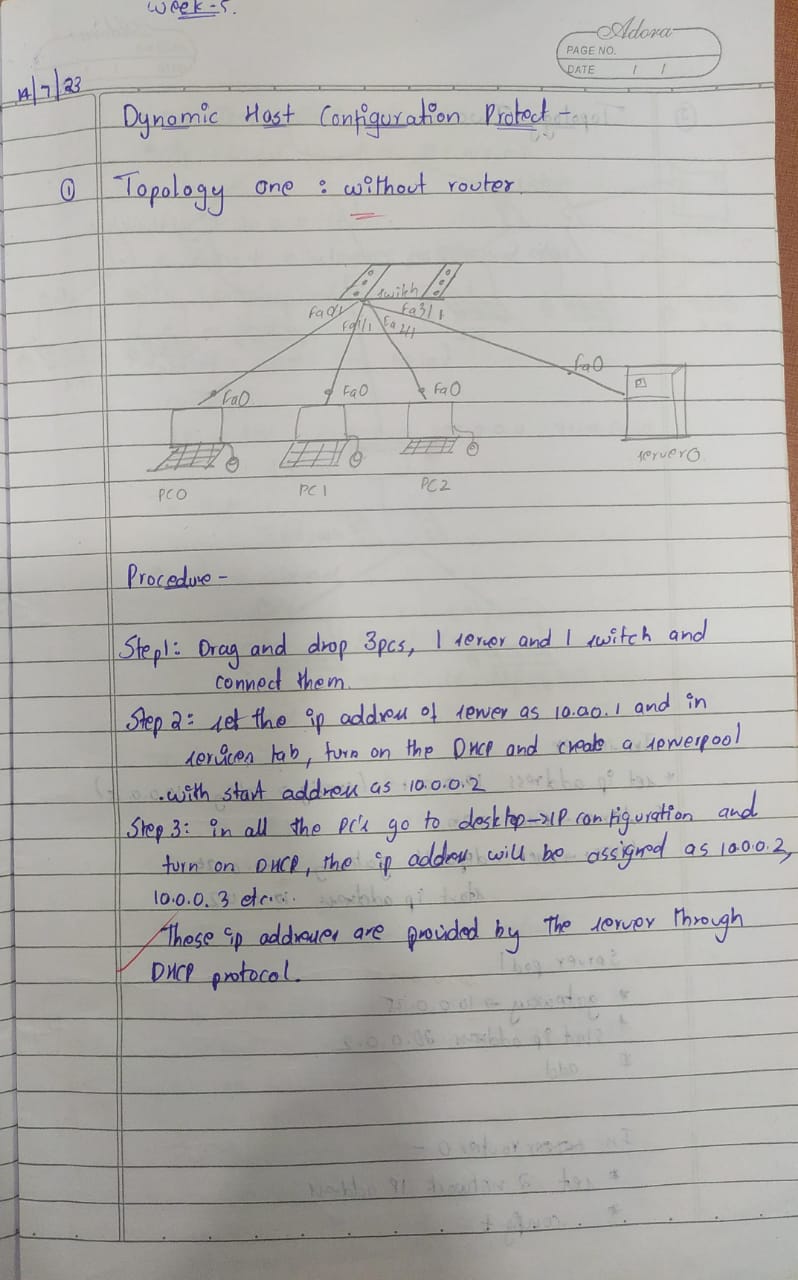 Week-5.
Adora
PAGE NO.
DATE / /
14/7/23
Dynamic Host Configuration Protect -
① Topology one : without router.
switch
Fa0/1
Fa1/1
Fa2/1
Fa3/1
Fa0
Fa0
Fa0
Fa0
PC0
PC1
PC2
server0
Procedure -
Step1: Drag and drop 3pcs, 1 server and 1 switch and
connect them.
Step 2: set the ip address of server as 10.00.1 and in
services tab, turn on the DHCP and create a serverpool
with start address as 10.0.0.2
Step 3: in all the PC's go to desktop→IP configuration and
turn on DHCP, the ip address will be assigned as 10.0.0.2,
10.0.0.3 etc...
These ip addresses are provided by the server through
DHCP protocol.